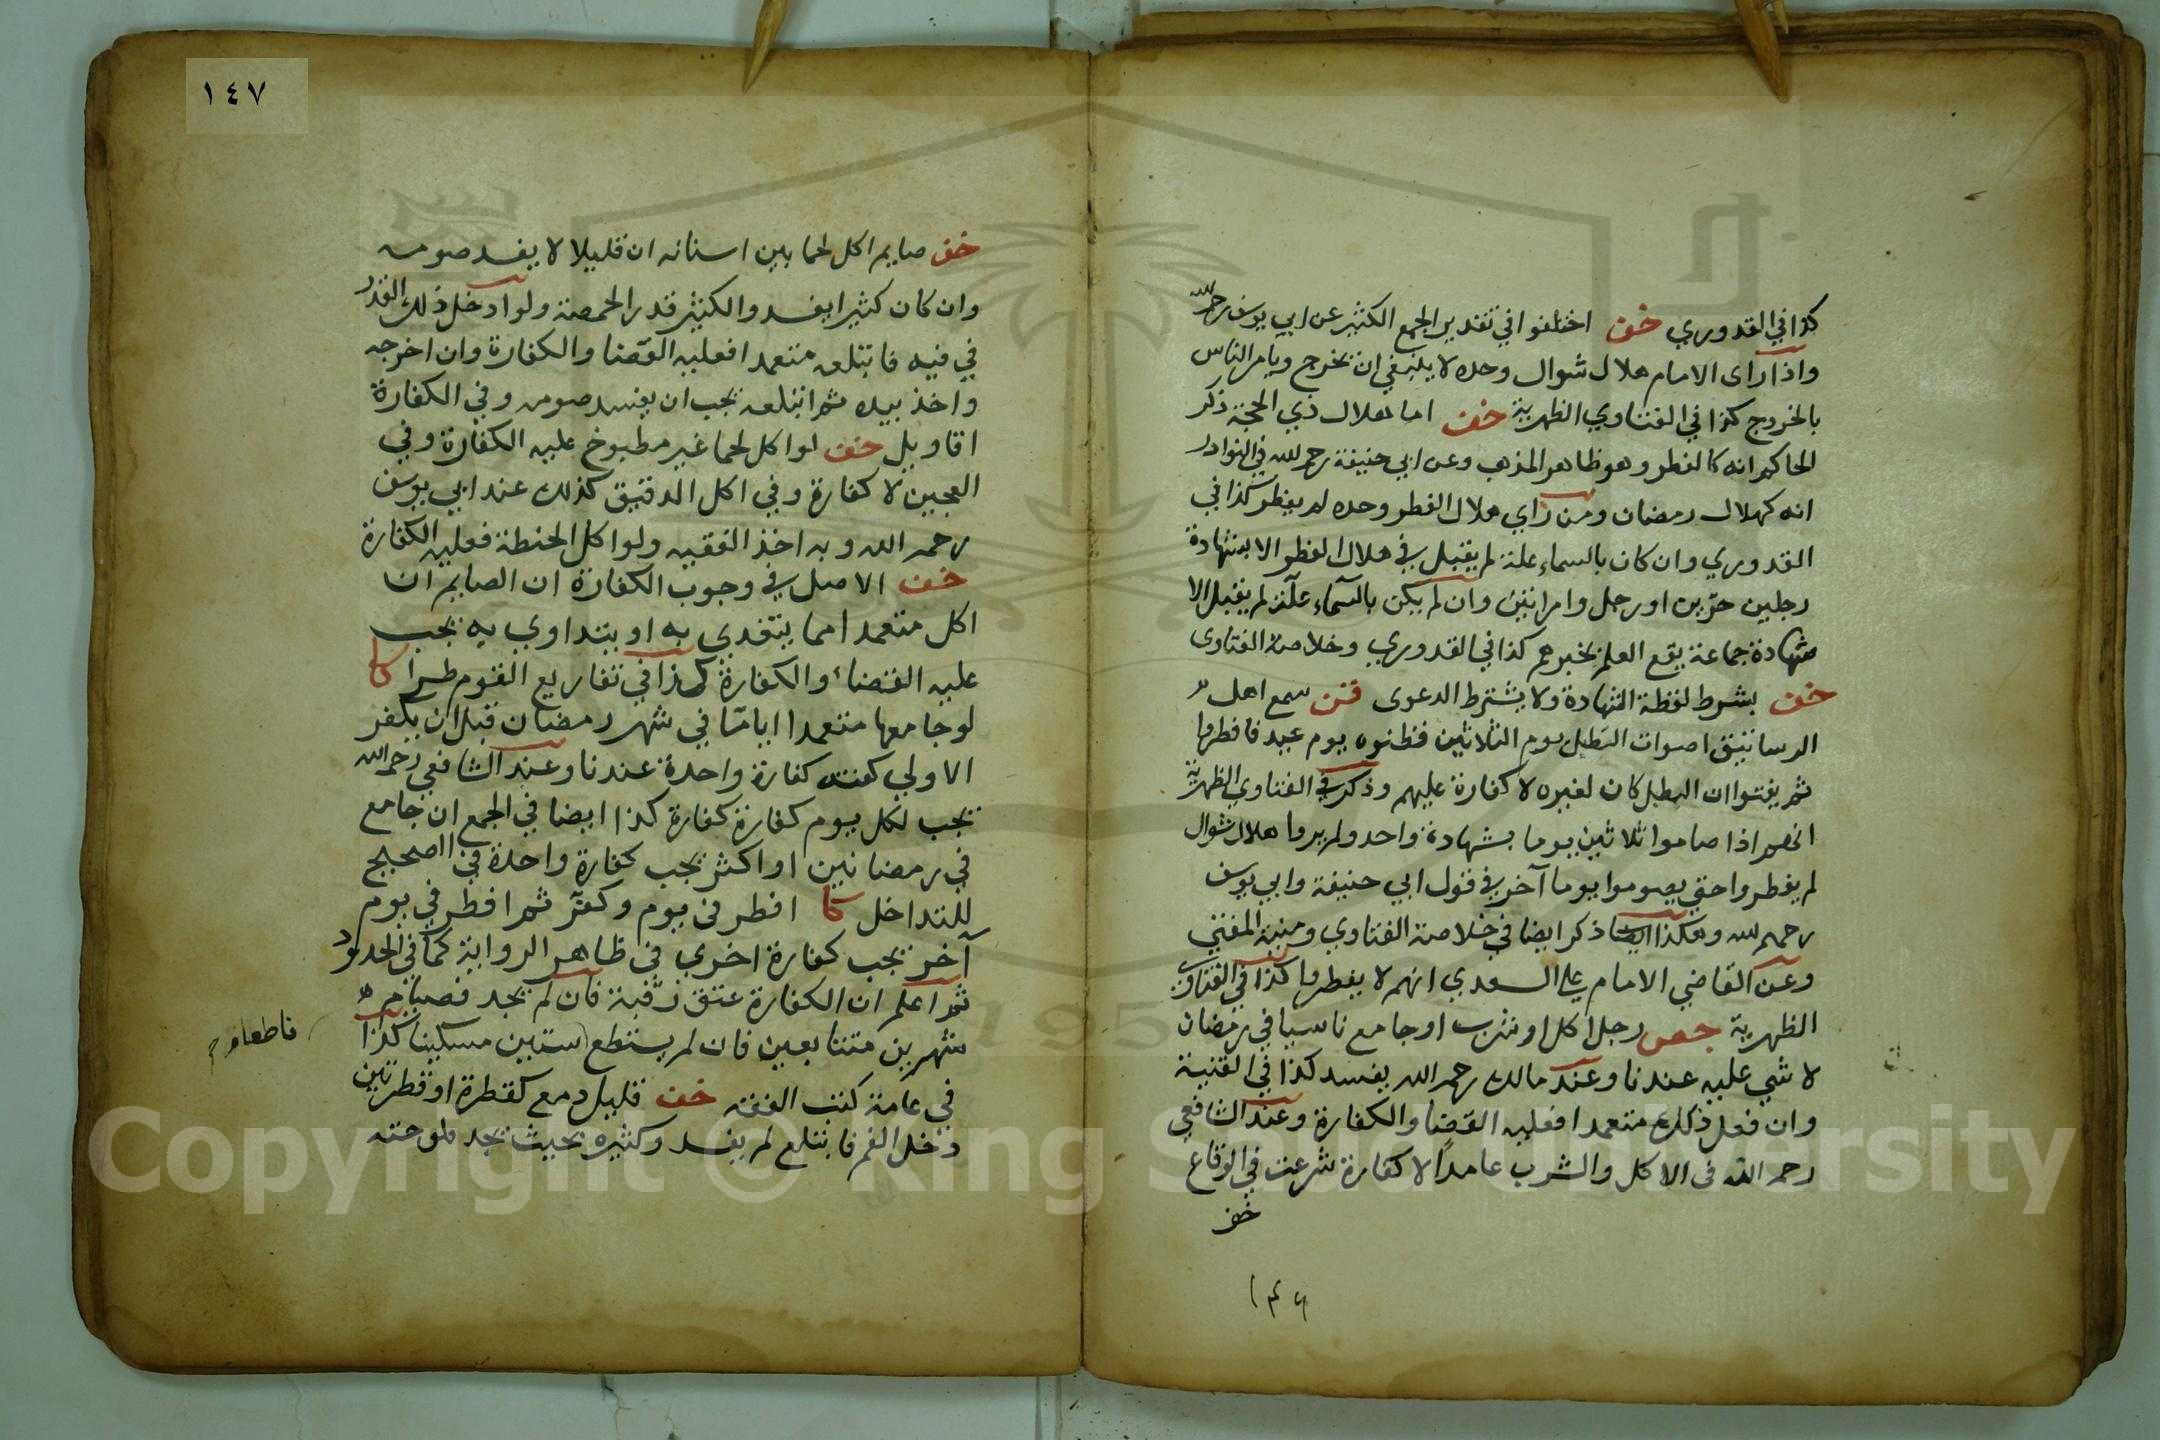 كذا في القدوري خف اختلفوا في تقدير الجمع الكثير عن ابي يوسف رحمه الله
واذا راى الامام هلال شوال وحده لا ينبغي ان يخرج ويامر الناس
بالخروج كذا في الفتاوي الظهرية خف اما هلال ذي الحجة ذكر
الحاكم انه كالفطر وهو ظاهر المذهب وعن ابي حنيفة رحمه الله في النوادر
انه كهلال رمضان ومن راي هلال الفطر وحده لم يفطر كذا في
القدوري وان كان بالسماء علة لم يقبل في هلال الفطر الا بشهادة
رجلين حرين او رجل وامراتين وان لم يكن بالسماء علة لم يقبل الا
شهادة جماعة يقع العلم بخبرهم كذا في القدوري وخلاصة الفتاوى
خف يشرط لفظة الشهادة ولا يشترط الدعوى قن سمع اهل
الرساتيق اصوات الطبل يوم الثلاثين فظنوه يوم عيد فافطروا
ثم يفتوا ان الطبل كان لغيره لا كفارة عليهم وذكر في الفتاوي الظهرية
انهم اذا صاموا ثلاثين يوما بشهادة واحد ولم يروا هلال شوال
لم يفطروا حتى يصوموا يوما آخر في قول ابي حنيفة وابي يوسف
رحمهم الله وهكذا ايضا ذكر ايضا في خلاصة الفتاوي ومنية المفتي
وعن القاضي الامام علي السعدي انهم لا يفطروا كذا في الفتاوي
الظهرية رجل اكل او شرب او جامع ناسيا في رمضان
لا شي عليه عندنا وعند مالك رحمه الله يفسد كذا في القنية
وان فعل ذلك متعمدا فعليه القضا والكفارة وعند الشافعي
رحمه الله في الاكل والشرب عامدا لا كفارة شرعت في الوقاع
خف
١٤٦
١٤٧
خف صايم اكل لحما بين اسنانه ان قليلا لا يفسد صومه
وان كان كثيرا يفسد والكثير قدر الحمصة ولو ادخل ذلك القدر
في فيه فابتلعه متعمدا فعليه القضا والكفارة وان اخرجه
واخذ بيده ثم ابتلعه يجب ان يفسد صومه وفي الكفارة
اقاويل خف لو اكل لحما غير مطبوخ عليه الكفارة وفي
العجين لا كفارة وفي اكل الدقيق كذلك عند ابي يوسف
رحمه الله وبه اخذ الفقيه ولو اكل الحنطة فعليه الكفارة
خف الاصل في وجوب الكفارة ان الصايم ان
اكل متعمدا مما يتغدي به او يتداوي به يجب
عليه القضاء والكفارة كذا في تفاريع القوم طرا كا
لو جامعها متعمدا اياما في شهر رمضان قبل ان يكفر
الاولي كفته كفارة واحدة عندنا وعند الشافعي رحمه الله
تجب لكل يوم كفارة كفارة كذا ايضا في الجمع ان جامع
في رمضانين او اكثر يجب كفارة واحدة في الصحيح
للتداخل كا افطر في يوم وكفر ثم افطر في يوم
آخر تجب كفارة اخري في ظاهر الرواية كما في الحدود
ثم اعلم ان الكفارة عتق رقبة فان لم يجد فصيام
شهرين متتابعين فان لم يستطع ستين مسكينا كذا
فاطعام
في عامة كتب الفقه خف قليل دمع كقطرة او قطرتين
دخل الفم فابتلع لم يفسد وكثيره بحيث يجد ملوحته
Copyright © King Saud University